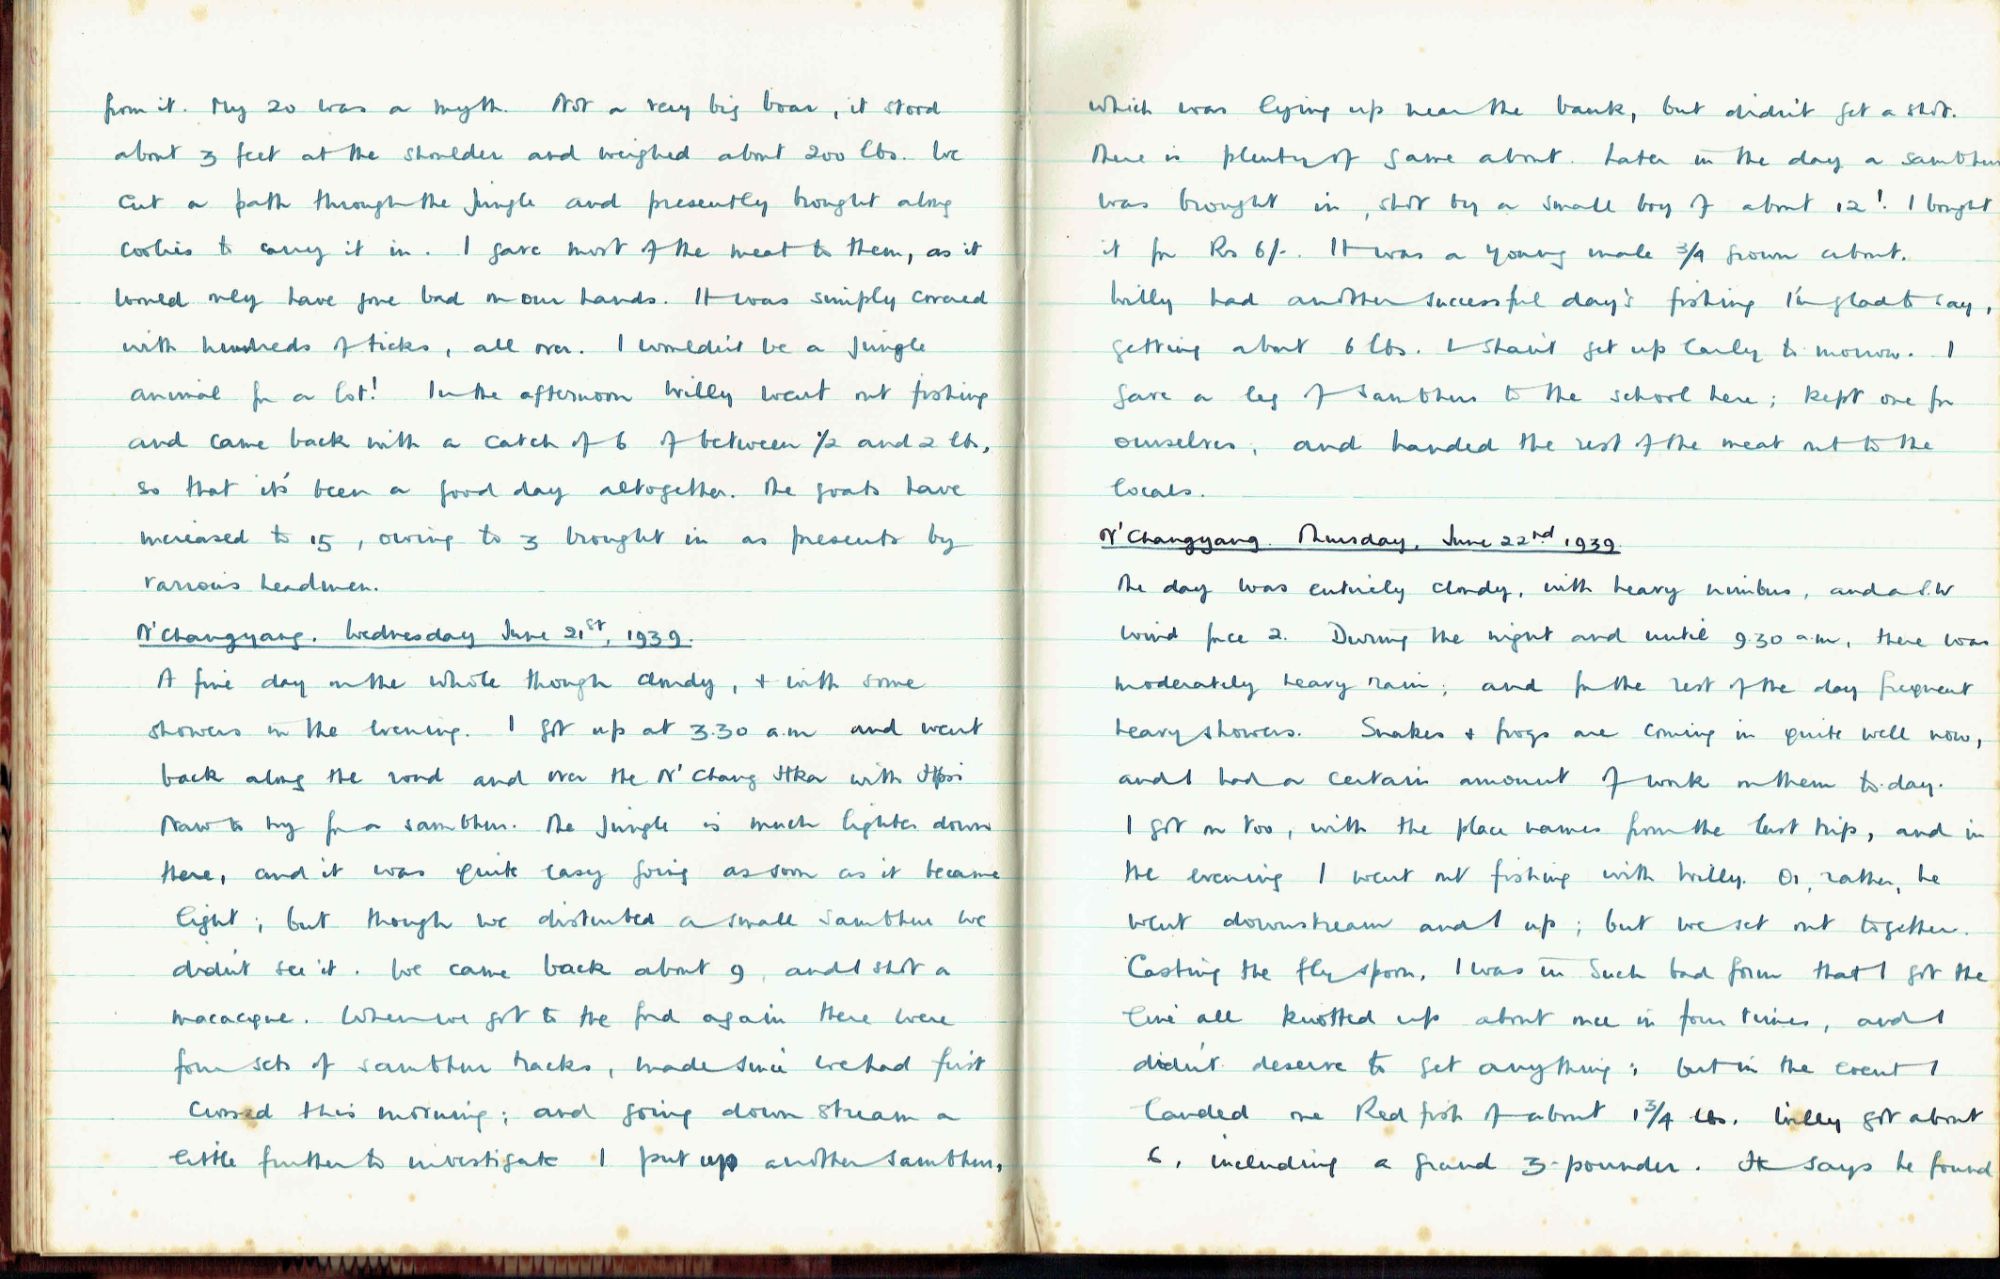 from it. My 20 was a myth. Not a very big boar, it stood
about 3 feet at the shoulder and weighed about 200 lbs. We
cut a path through the jungle and presently brought along
coolies to carry it in. I gave most of the meat to them, as it
would only have gone bad on our hands. It was simply covered
with hundreds of ticks, all over. I wouldn't be a jungle
animal for a lot! In the afternoon Willy went out fishing
and came back with a catch of 6 of between 1/2 and 2 lbs,
so that it's been a good day altogether. The goats have
increased to 15, owing to 3 brought in as presents by
various headmen.
N'Changyang. Wednesday June 21st, 1939.
A fine day on the whole though cloudy, + with some
showers in the evening. I got up at 3.30 a.m and went
back along the road and over the N'Chang Hka with
Naw to try for a sambhur. The jungle is much lighter down
there, and it was quite easy going as soon as it became
light; but though we disturbed a small sambhur we
didn't see it. We came back about 9, and I shot a
macacque. When we got to the ford again there were
four sets of sambhur tracks, made since we had first
crossed this morning; and going down stream a
little further to investigate I put up another sambhur,
which was lying up near the bank, but didn't get a shot.
There is plenty of game about. Later in the day a sambhur
was brought in, shot by a small boy of about 12! I bought
it for Rs 6/-. It was a young male 3/4 grown about.
Willy had another successful day's fishing I'm glad to say,
getting about 6 lbs. I shan't get up early to-morrow. I
gave a leg of sambhur to the school here; kept one for
ourselves, and handed the rest of the meat out to the
locals.
N'Changyang. Thursday, June 22nd 1939.
The day was entirely cloudy, with heavy nimbus, and a S.W
wind force 2. During the night and until 9.30 a.m, there was
moderately heavy rain; and for the rest of the day frequent
heavy showers. Snakes + frogs are coming in quite well now,
and I had a certain amount of work on them to-day.
I got on too, with the place names from the last trip, and in
the evening I went out fishing with Willy. Or, rather, he
went downstream and I up; but we set out together.
Casting the fly spoon, I was in such bad form that I got the
line all knotted up about once in four times, and I
didn't deserve to get anything; but in the event I
landed one Red fish of about 1 3/4 lbs. Willy got about
6, including a grand 3-pounder. He says he found